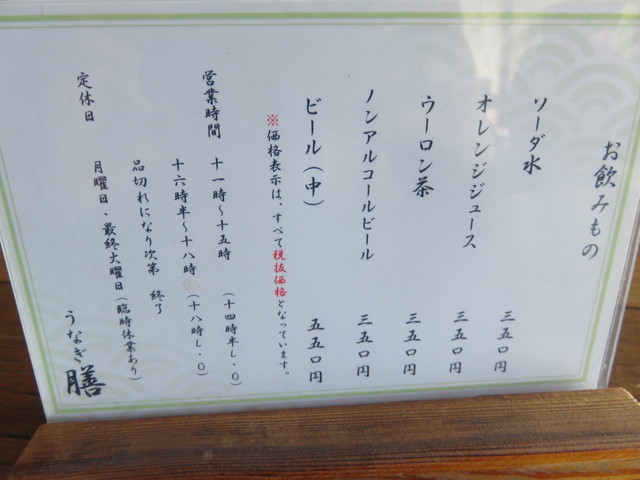 お飲みもの
ソーダ水 三五〇円
オレンジジュース 三五〇円
ウーロン茶 三五〇円
ノンアルコールビール 三五〇円
ビール（中） 五五〇円
※価格表示は、すべて税抜価格となっています。
営業時間 十一時〜十五時 （十四時半L.O）
十六時半〜十八時 （十八時L.O）
品切れになり次第 終了
定休日 月曜日・最終火曜日（臨時休業あり）
うなぎ 膳